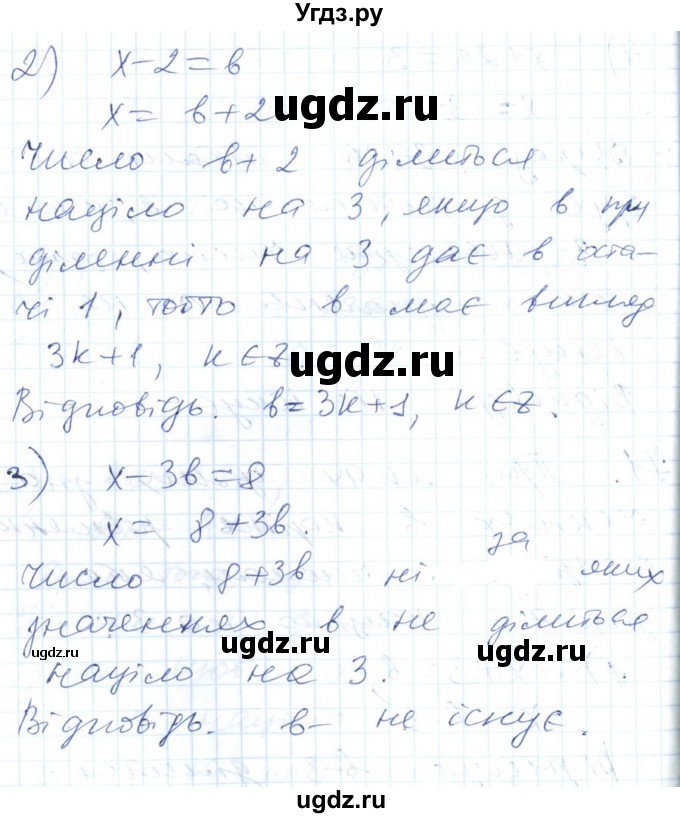 Угдз.ру
2) x-2=в
x= в+2
ugdz.ru
Число в+2 ділиться
націло на 3, якщо в при
діленні на 3 дає в оста-
чі 1, тобто в має вигляд
3k+1, k∈Z.
ugdz.ru
Відповідь. в=3k+1, k∈Z.
3) x-3в=8
x= 8+3в.
Число 8+3в ні за яких
значеннях в не ділиться
ugdz.ru
ugdz.ru
ugdz.ru
націло на 3.
Відповідь. в- не існує.
ugdz.ru
ugdz.ru